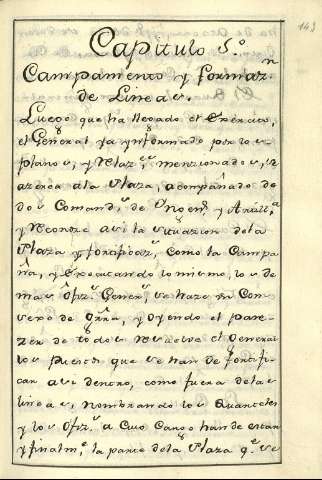 143
Capitulo 5.º
Campamento y formaz.n
de Lineas.
Luego que ha llegado el Exercito,
el General ya ynformado por los
planos, y Relaz.es mencionados, se
azerca ala Plaza, acompañado de
dos Comand.s de Yngen.s y Artill.a
y Reconoze asi la situazion dela
Plaza y fortificaz.s como la Campa
ña, y Executando lo mismo, los de
mas Ofiz.s Gener.s se haze un Con
sexo de Grra, y oyendo el pare-
zer de todos Resuelve el General
los puestos que se han de fortifi-
car asi dentro, como fuera delas
lineas, nombrando los Quarteles
y los Ofiz.s a Cuio Cargo han de estar
y finalm.te la parte dela Plaza q.e se